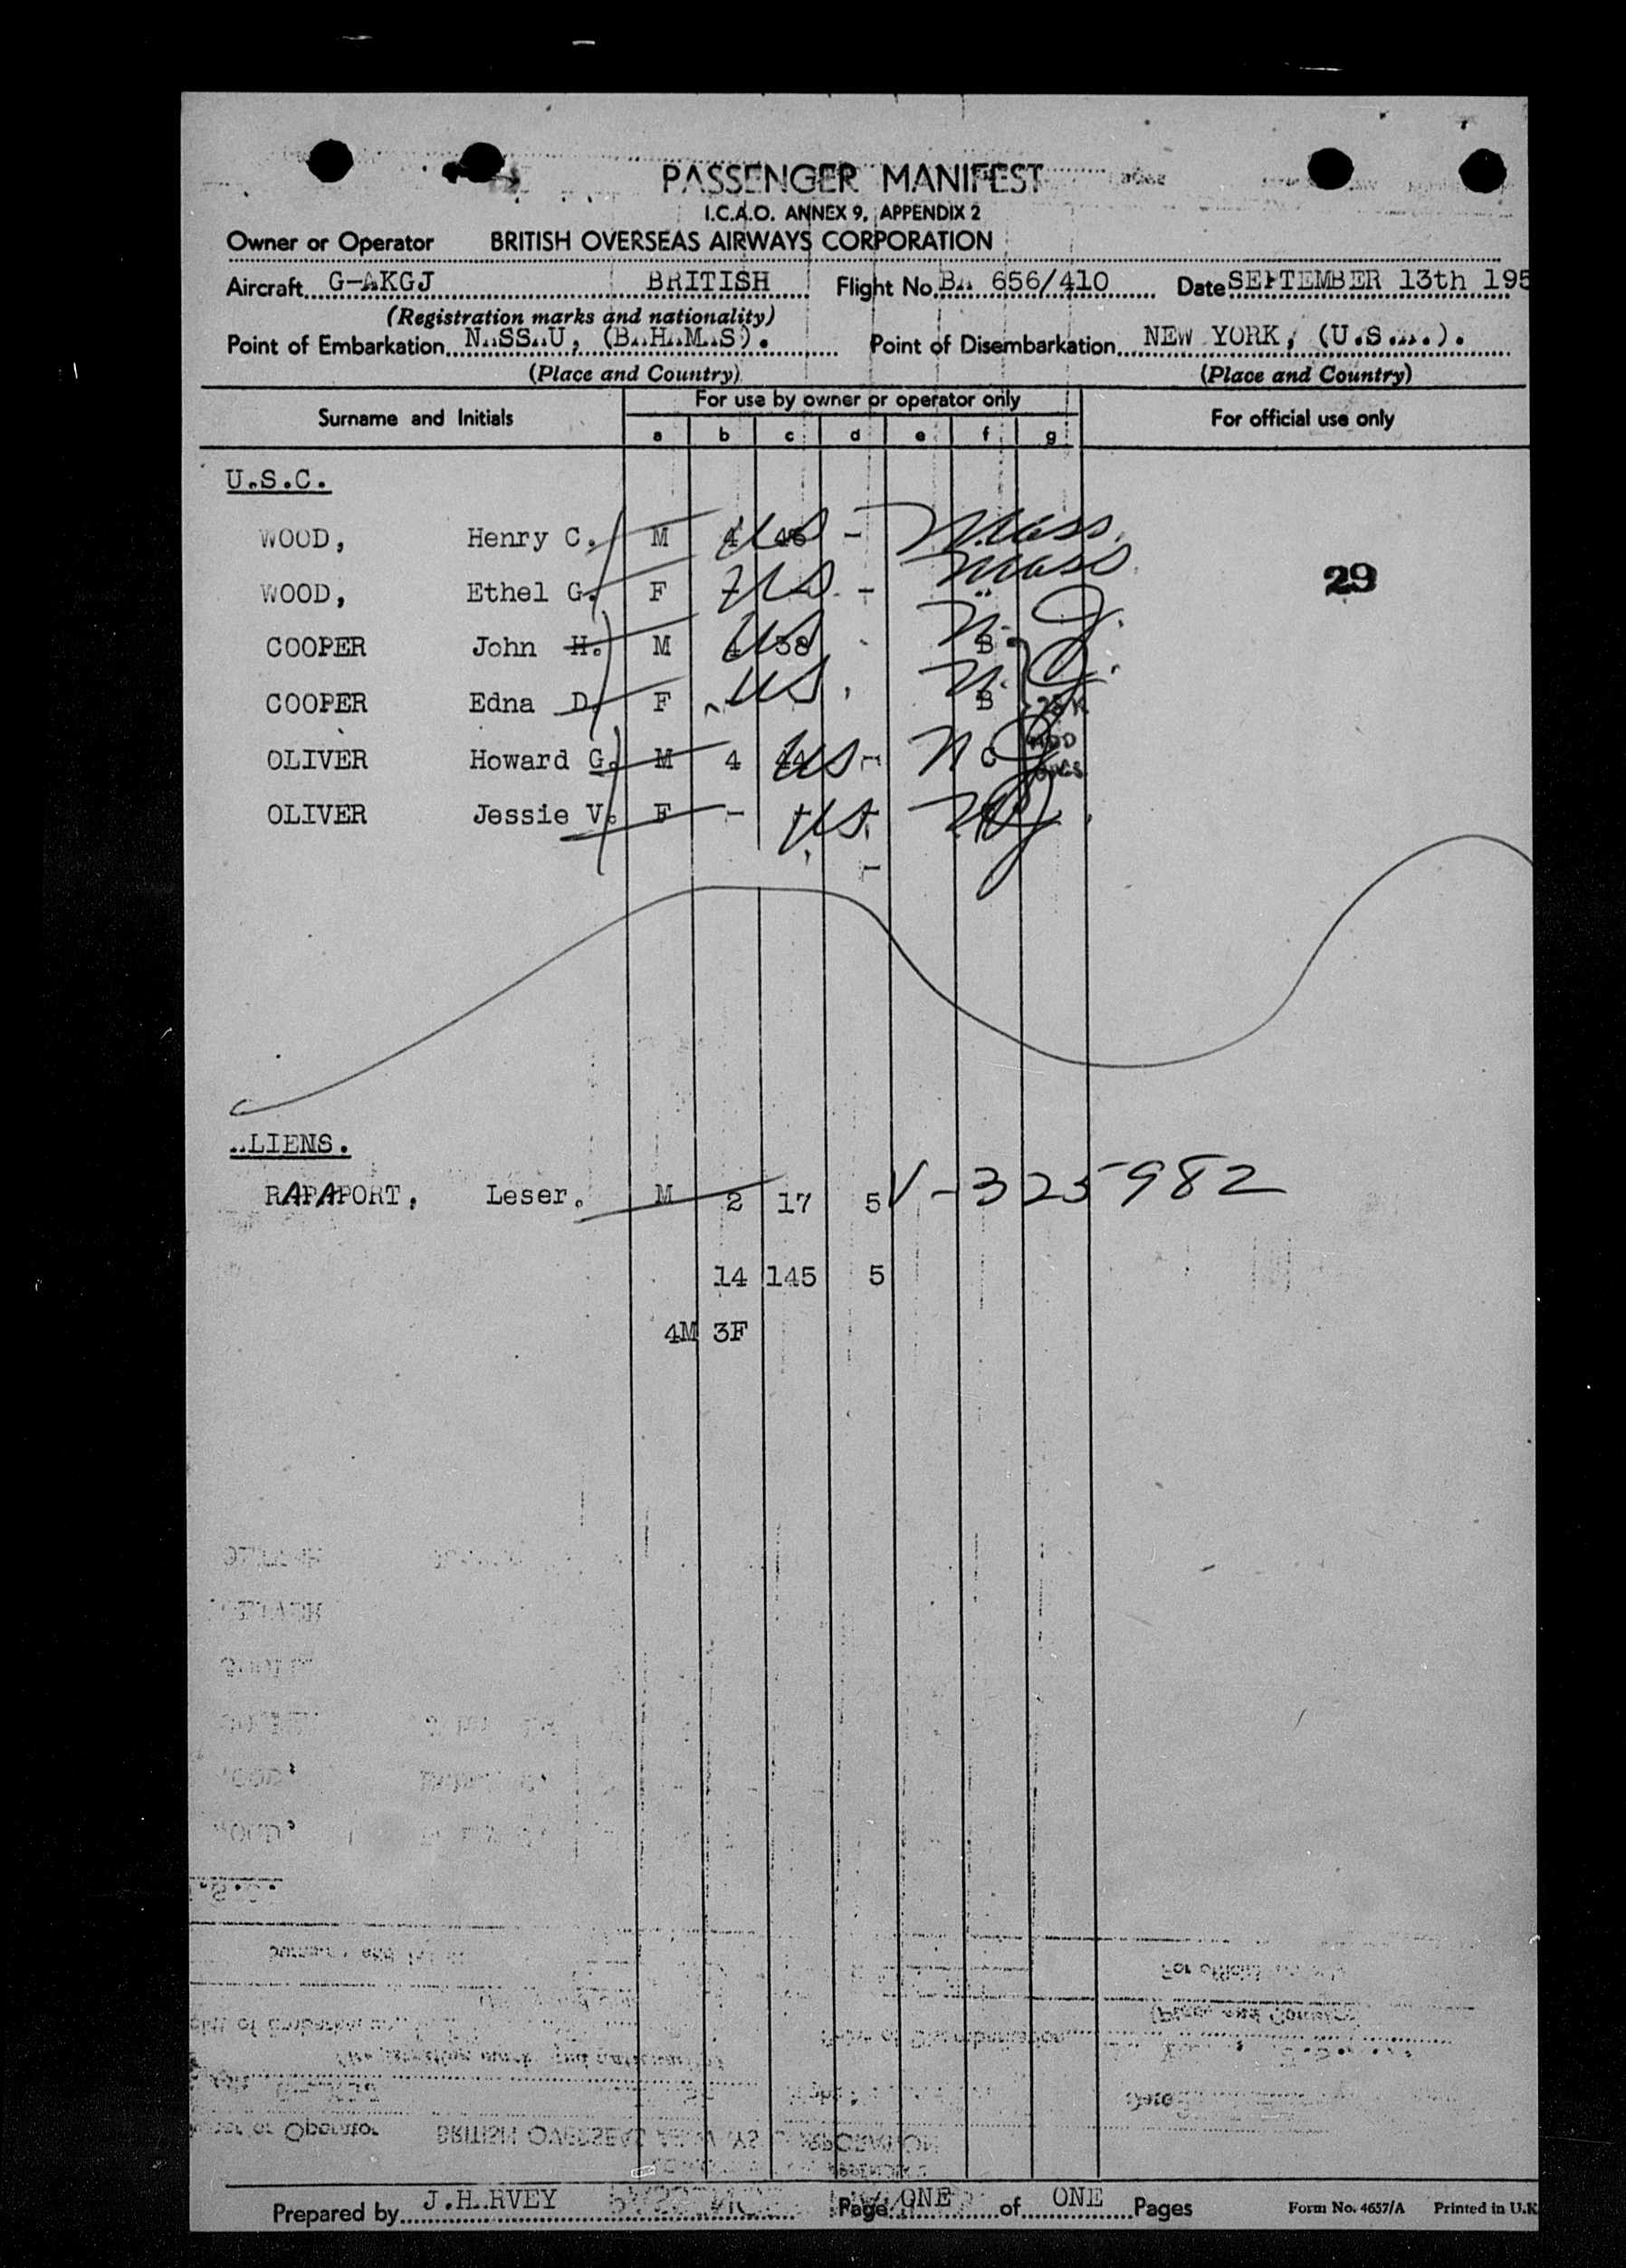 PASSENGER MANIFEST
I.C.A.O. ANNEX 9, APPENDIX 2
Owner or Operator BRITISH OVERSEAS AIRWAYS CORPORATION
Aircraft G-AKGJ BRITISH Flight No. BA 656/410 Date SEPTEMBER 13th 195
(Registration marks and nationality)
Point of Embarkation NASSAU, (BAHAMAS). Point of Disembarkation NEW YORK, (U.S.A.).
(Place and Country) (Place and Country)
Surname and Initials For use by owner or operator only For official use only
a b c d e f g
U.S.C.
WOOD, Henry C. M 4 US - Mass.
WOOD, Ethel G. F - US - " Mass 29
COOPER John H. M US 38 - B N.J.
COOPER Edna D. F - US B N.J.
OLIVER Howard G. M 4 US - C N.J.
OLIVER Jessie V. F - US N.J.
ALIENS.
RAPAPORT, Leser. M 2 17 5 V-325982
14 145 5
4M 3F
Prepared by J.HARVEY Page ONE of ONE Pages Form No. 4657/A Printed in U.K